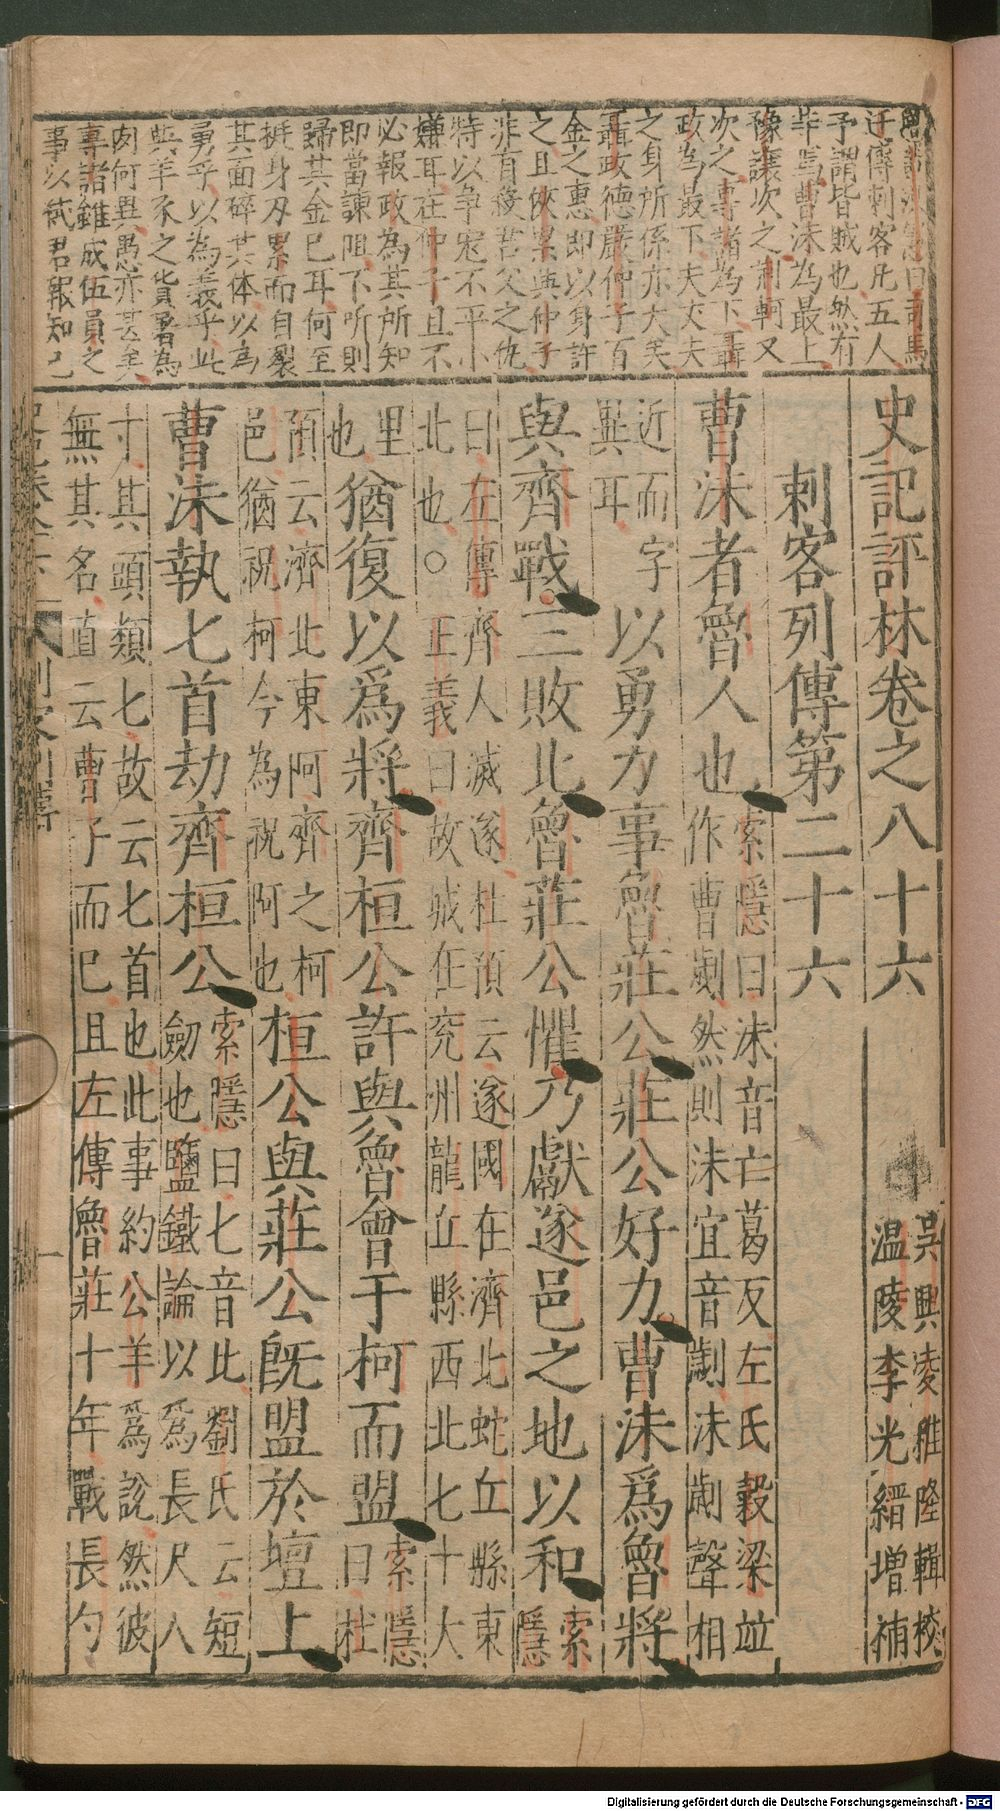 史記評林卷之八十六
吳興凌稚隆輯校
温陵李光縉增補
刺客列傳第二十六
曹沬者魯人也
索隱曰沬音亡葛反左氏穀梁竝
作曹劌然則沬宜音劌沬劌聲相
近而字
異耳
以勇力事魯莊公莊公好力曹沬爲魯將
與齊戰三敗北魯莊公懼乃獻遂邑之地以和
索
隱
曰左傳齊人滅遂杜預云遂國在濟北蛇丘縣東
北也○正義曰故城在兖州龍丘縣西北七十六
里
也
猶復以爲將齊桓公許與魯會于柯而盟
索隱
曰杜
預云濟北東阿齊之柯
邑猶祝柯今為祝阿也
桓公與莊公旣盟於壇上
曹沬執匕首劫齊桓公
索隱曰匕音比劉氏云短
劒也鹽鐵論以爲長尺八
寸其頭類匕故云匕首也此事約公羊爲說然彼
無其名直云曹子而已且左傳魯莊十年戰長勺
刺客列傳
一
司馬
迁傳刺客凡五人
予謂皆賊也然有
等焉曹沬為最上
豫讓次之荆軻又
次之專諸為下聶
政為最下夫丈夫
之身所係亦大矣
聶政德嚴仲子百
金之惠即以身許
之且俠累與仲子
非有殺君父之仇
特以爭寵不平小
嫌耳在仲子且不
必報政為其所知
即當諫阻不听則
歸其金已耳何至
挺身刃累而自裂
其面碎其体以為
勇乎以為義乎此
與羊豕之貨屠為
肉何異愚亦甚矣
專諸雖成伍員之
事以弒君報知己
Digitalisierung gefördert durch die Deutsche Forschungsgemeinschaft - DFG